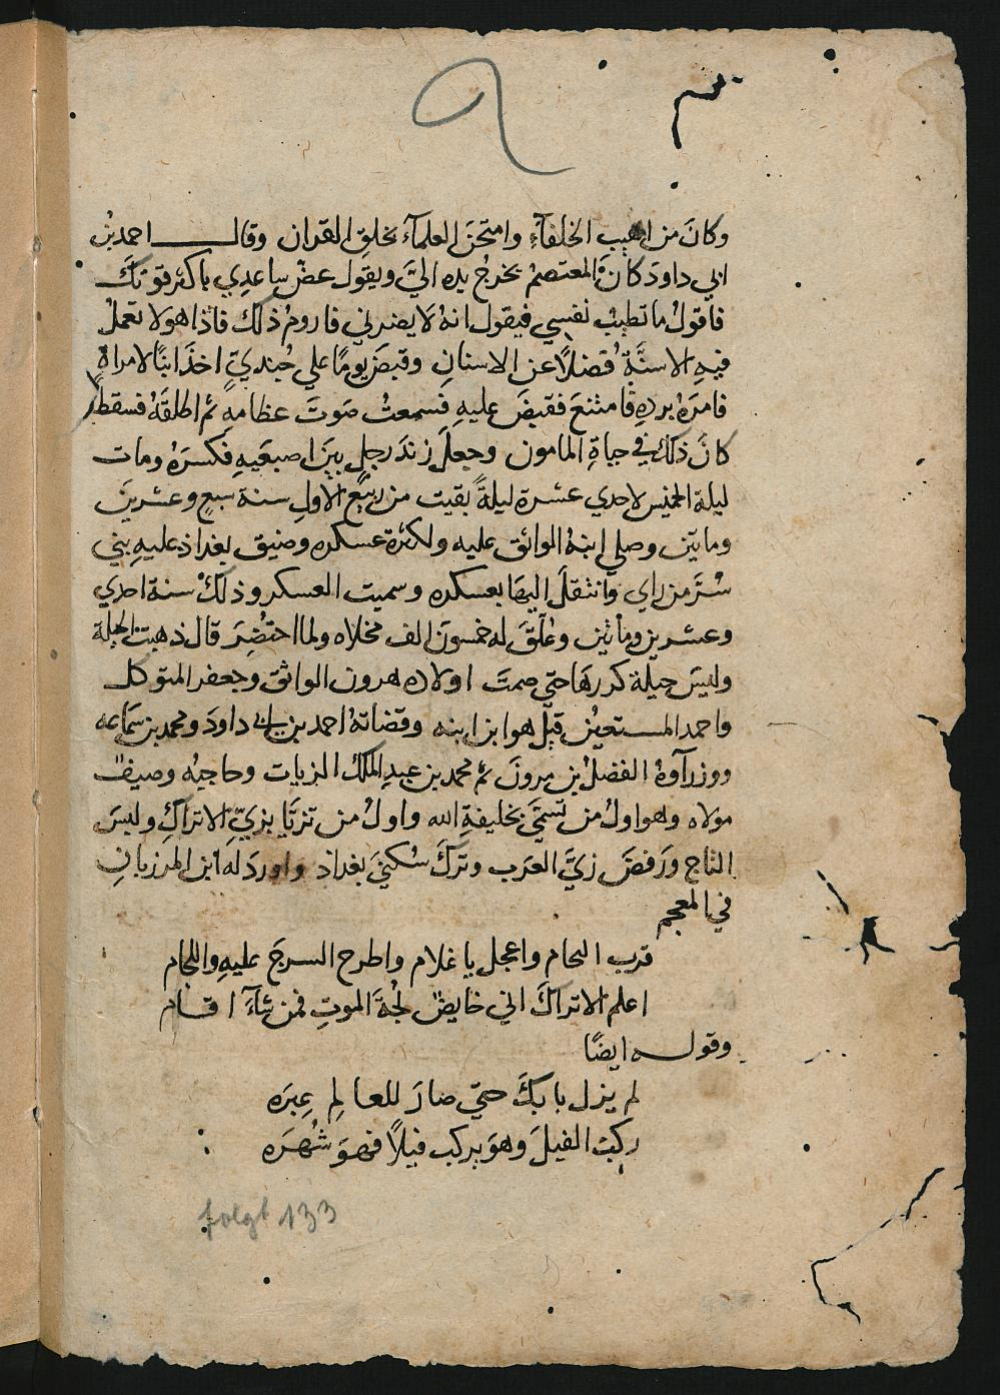 وكانَ من اهيب الخلفآءِ وامتحَنَ العلمآءَ بخلقِ القران وقالــــ احمد بنُ
ابي داودَ كانَ المعتصمُ يخرجُ يده اليَّ ويقول عضَّ ساعدِي باكثر قوتكَ
فاقولُ ما تطيبُ نفسِي فيقول انهُ لا يضرني فارومُ ذلكَ فاذا هو لا تعملُ
فيهِ الاسنَّةُ فضلاً عن الاسنانِ وقبضَ يومًا علي جُنديٍّ اخذَ ابنًا لامراةٍ
فامرَهُ بردهِ فامتنعَ فقبضَ عليهِ فسمعتُ صَوتَ عظامهِ ثم اطلقَهُ فسقطَ
كانَ ذلك في حياةِ المامون وجعلَ زندَ رجلٍ بينَ اصبعَيهِ فكسرَهُ ومات
ليلةَ الخميس لاحدي عشرة ليلةً بقيت من ربيعٍ الاولِ سنة سبعٍ وعشرينَ
ومايتين وصلي ابنهُ الواثق عليه ولكثرة عسكره وضيق بغداد عليهِ بني
سُرَّ من راي وانتقلَ اليهَا بعسكره وسميت العسكر وذلكَ سنة احدي
وعشرين ومايتين وعُلّقَ له خمسونَ الف مخلاه ولما احتُضِرَ قال ذهبت الحيلة
وليسَ حيلة كررهَا حتي صمتَ اولاده هرون الواثق وجعفر المتوكل
واحمد المستعين قيل هو ابن ابنه وقضاتهُ احمد بن ابي داودَ ومحمد بن سَمَاعه
ووزرآوهُ الفضلُ بن مرونَ ثم محمد بن عبدِ الملك الزيات وحاجبُه وصيفٌ
مولاه وهو اولُ من تسمّيَ بخليفةِ الله واولُ من تزيّا بزيِّ الاتراكِ ولبسَ
التاج ورَفضَ زيَّ العرَب وتركَ سُكنيَ بغداد واوردَ له ابن المرزبانِ
في المعجم
قرب النحام واعجل يا غلام واطرح السرجَ عليهِ واللجام
اعلم الاتراكَ اني خايضٌ لجُةَ الموتِ فمن شآءَ اقــام
وقولــه ايضًا
لم يزل بابكَ حتي صَارَ للعالِم عِبرَه
ركبَ الفيلَ وهوَ يركب فيلاً فهوَ شُهرَه
folgt 133